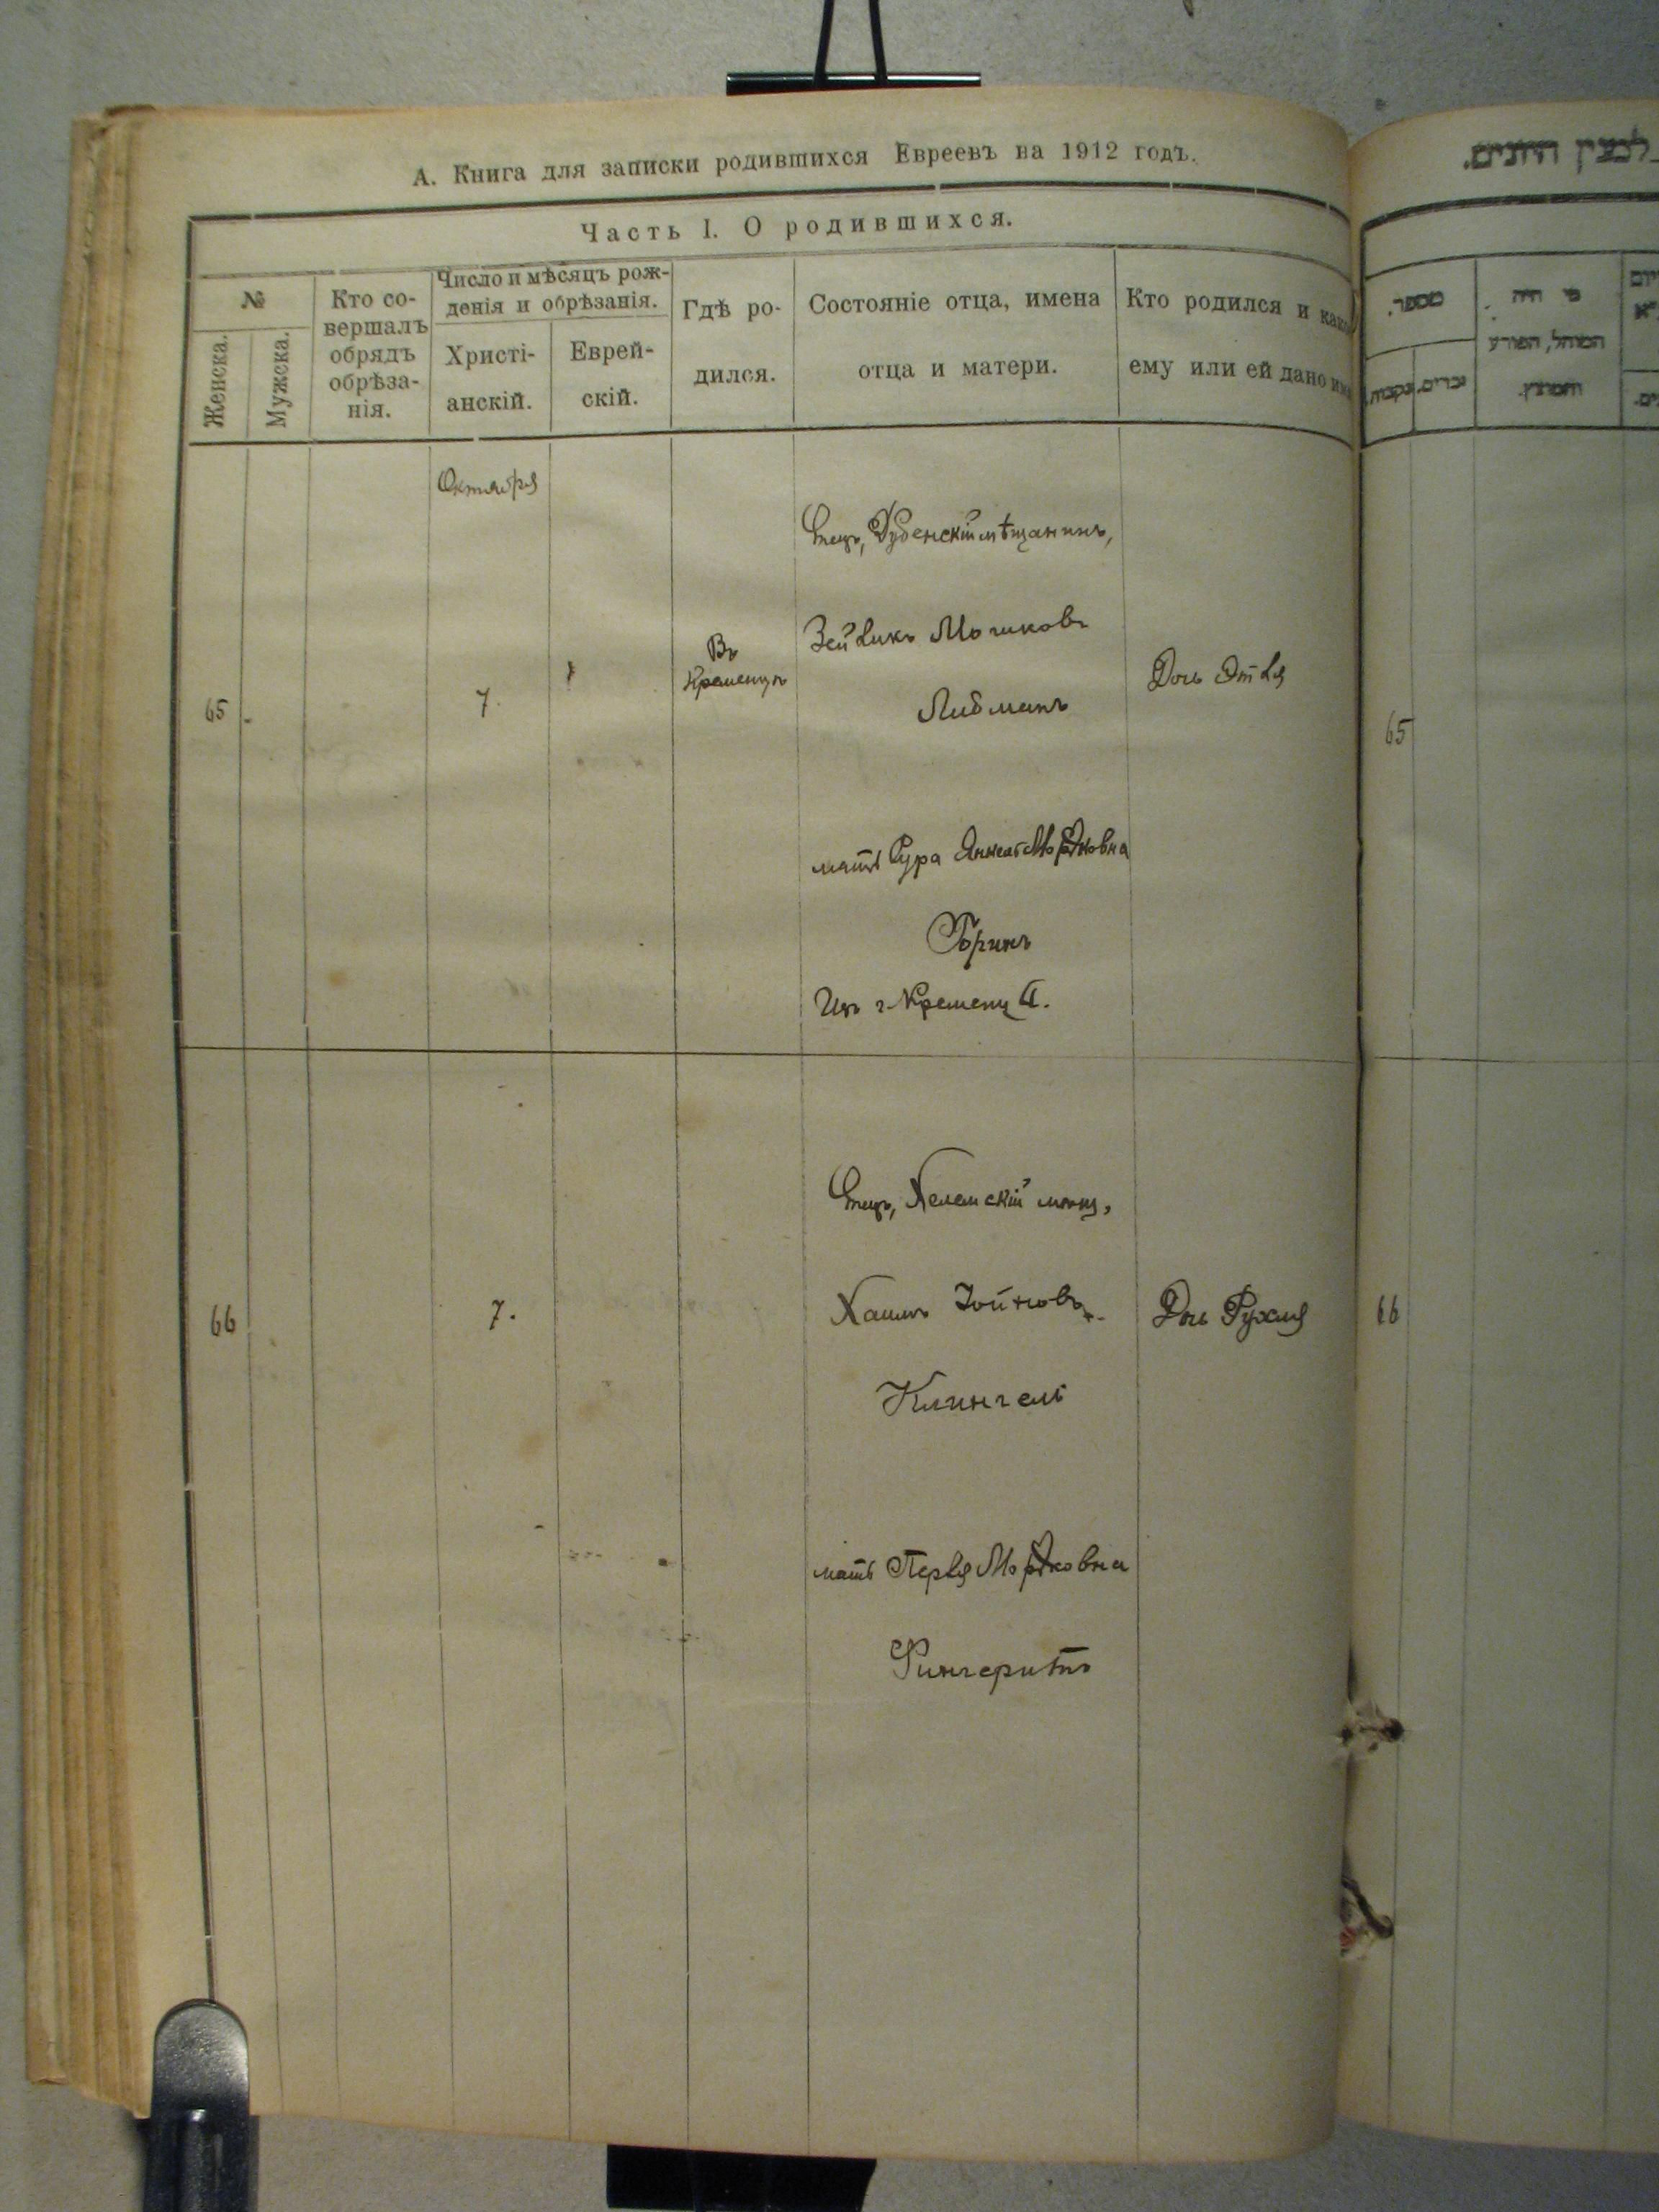 А. Книга для записки родившихся Евреевъ на 1912 годъ.
Часть I. О родившихся.
№
Женска.
Мужска.
Кто со-
вершалъ
обрядъ
обрѣза-
нія.
Число и мѣсяцъ рож-
денія и обрѣзанія.
Христі-
анскій.
Еврей-
скій.
Гдѣ ро-
дился.
Состояніе отца, имена
отца и матери.
Кто родился и како
ему или ей дано имя
Октября
65
7.
Въ
Кременцѣ
Отецъ, Дубенскій мѣщанинъ,
Зейликъ Мошковъ
Либманъ
мать Сура Мордковна
Горинъ
Изъ г. Кременца.
Дочь Этля
66
7.
Отецъ, мѣщ.
Хаимъ
Клингель
мать Перля Мордковна
Фингерить
Дочь Рухля
מספר.
זכרים.
נקבות.
מי היה
המוהל, הפורע
והמוצץ.
65
66